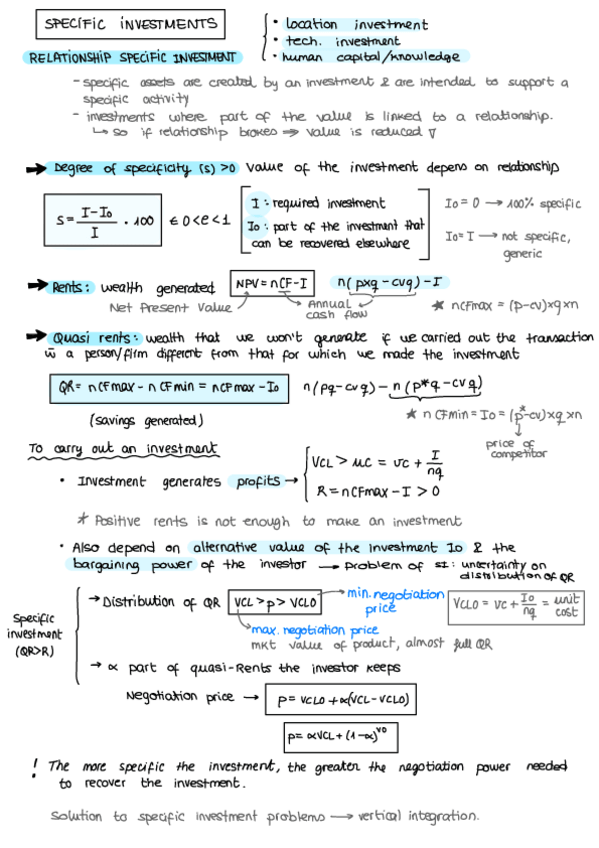 SPECIFIC INVESTMENTS
• location investment
• tech. investment
• human capital/knowledge
RELATIONSHIP SPECIFIC INVESTMENT
- specific assets are created by an investment & are intended to support a
specific activity
- investments where part of the value is linked to a relationship.
↳ so if relationship brokes ⇒ value is reduced ∇
→ Degree of specificity (s) >0 value of the investment depens on relationship
S = (I - I0)/I · 100 ∈ 0<e<1
I : required investment
I0 : part of the investment that
can be recovered elsewhere
I0 = 0 → 100% specific
I0 = I → not specific,
generic
→ Rents: wealth generated NPV = nCF - I n(pxq - cvq) - I
Net Present Value Annual
cash flow
* nCFmax = (p-cv)xqxn
→ Quasi rents: wealth that we won't generate if we carried out the transaction
w̄ a person/firm different from that for which we made the investment
QR = nCFmax - nCFmin = nCFmax - I0 n(pq - cvq) - n(p*q - cvq)
(savings generated)
* nCFmin = I0 = (p*-cv)xqxn
price of
competitor
To carry out an investment
• Investment generates profits →
VCL > uc = vc + I/nq
R = nCFmax - I > 0
* Positive rents is not enough to make an investment
• Also depend on alternative value of the investment I0 & the
bargaining power of the investor → problem of SI: uncertainty on
distribution of QR
Specific
investment
(QR>R)
→ Distribution of QR VCL > p > VCL0 min. negotiation
price
VCL0 = vc + I0/nq = unit
cost
max. negotiation price
mkt value of product, almost full QR
→ ∝ part of quasi-Rents the investor keeps
Negotiation price → p = VCL0 + ∝(VCL - VCL0)
p = ∝VCL + (1-∝)^VO
! The more specific the investment, the greater the negotiation power needed
to recover the investment.
Solution to specific investment problems → vertical integration.